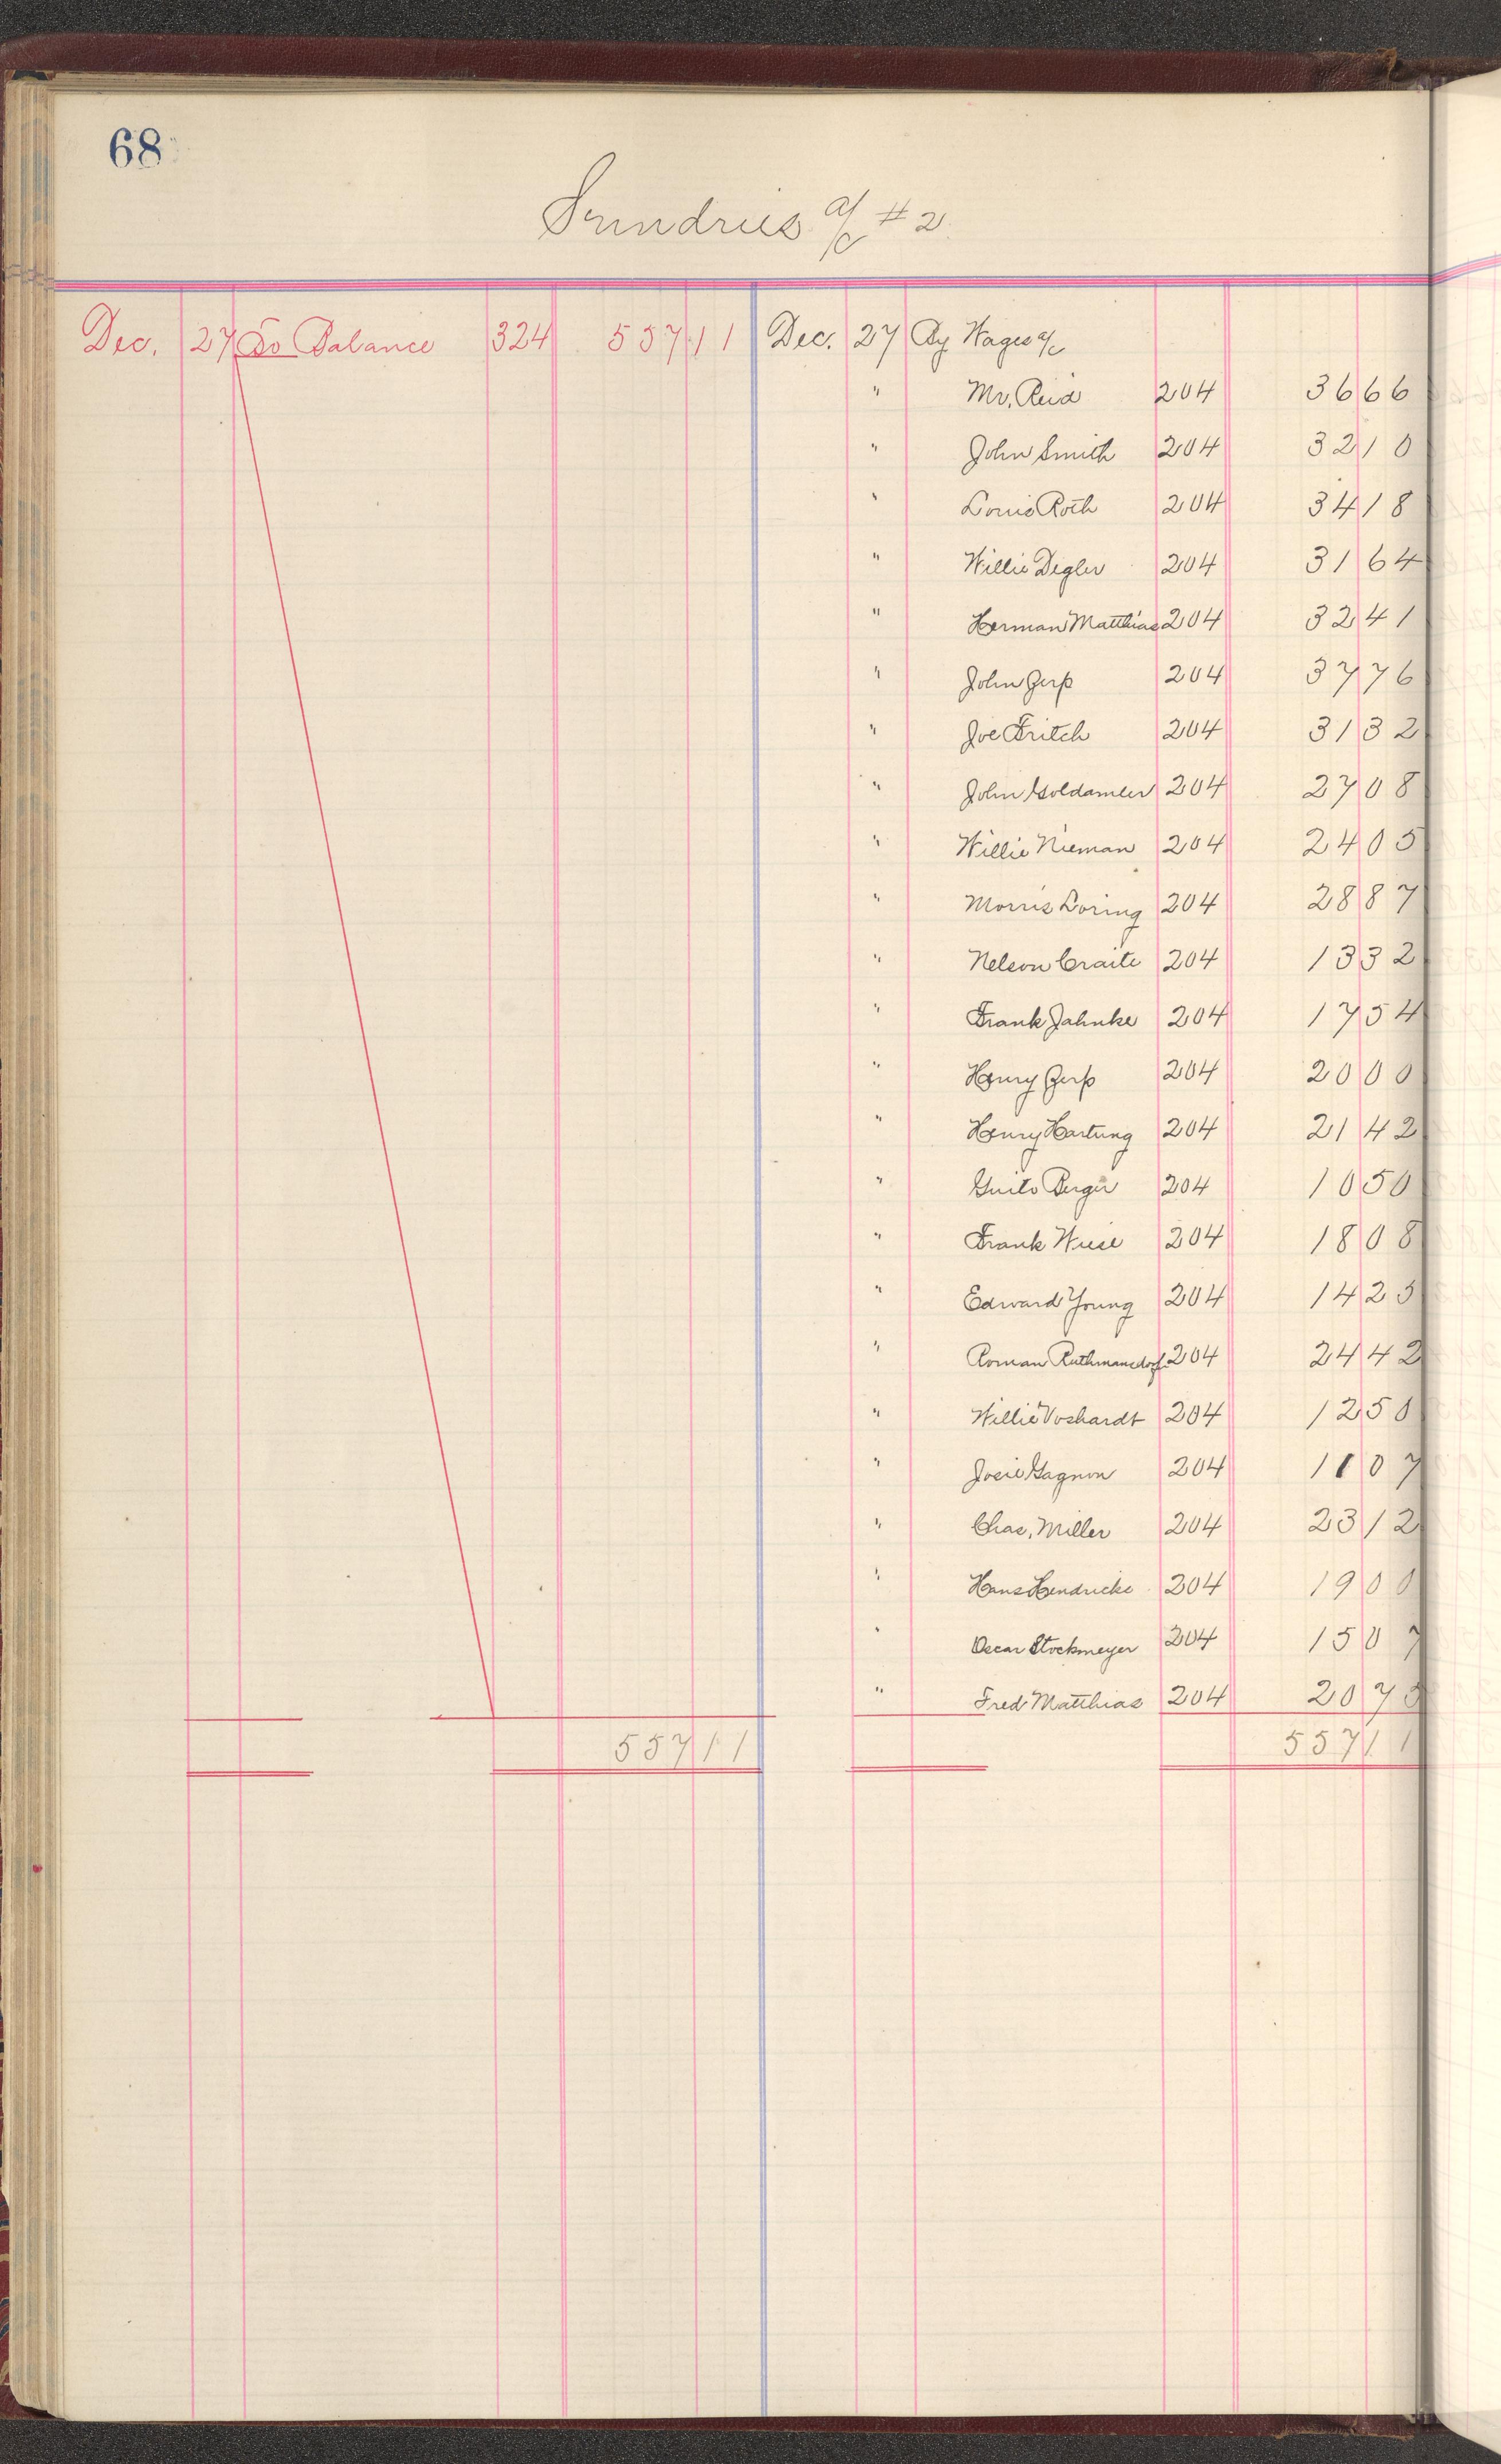 68
Sundries a/c #2
Dec. 27 To Balance 324 557 11 Dec. 27 By Wages a/c
" Mr. Reid 204 36 66
" John Smith 204 32 10
" Louis Roth 204 34 18
" Willie Digler 204 31 64
" Herman Matthias 204 32 41
" John Gerp 204 37 76
" Joe Fritch 204 31 32
" John Goldamler 204 27 08
" Willie Nieman 204 24 05
" Morris Loring 204 28 87
" Nelson Craite 204 13 32
" Frank Jahnke 204 17 54
" Henry Gerp 204 20 00
" Henry Hartung 204 21 42
" Guito Berger 204 10 50
" Frank Wiese 204 18 08
" Edward Young 204 14 25
" Roman Ruthmansdorf 204 24 42
" Willie Voshardt 204 12 50
" Josie Gagnon 204 11 07
" Chas. Miller 204 23 12
" Hans Hendricks 204 19 00
" Oscar Stockmeyer 204 15 07
" Fred Matthias 204 20 75
557 11 557 11